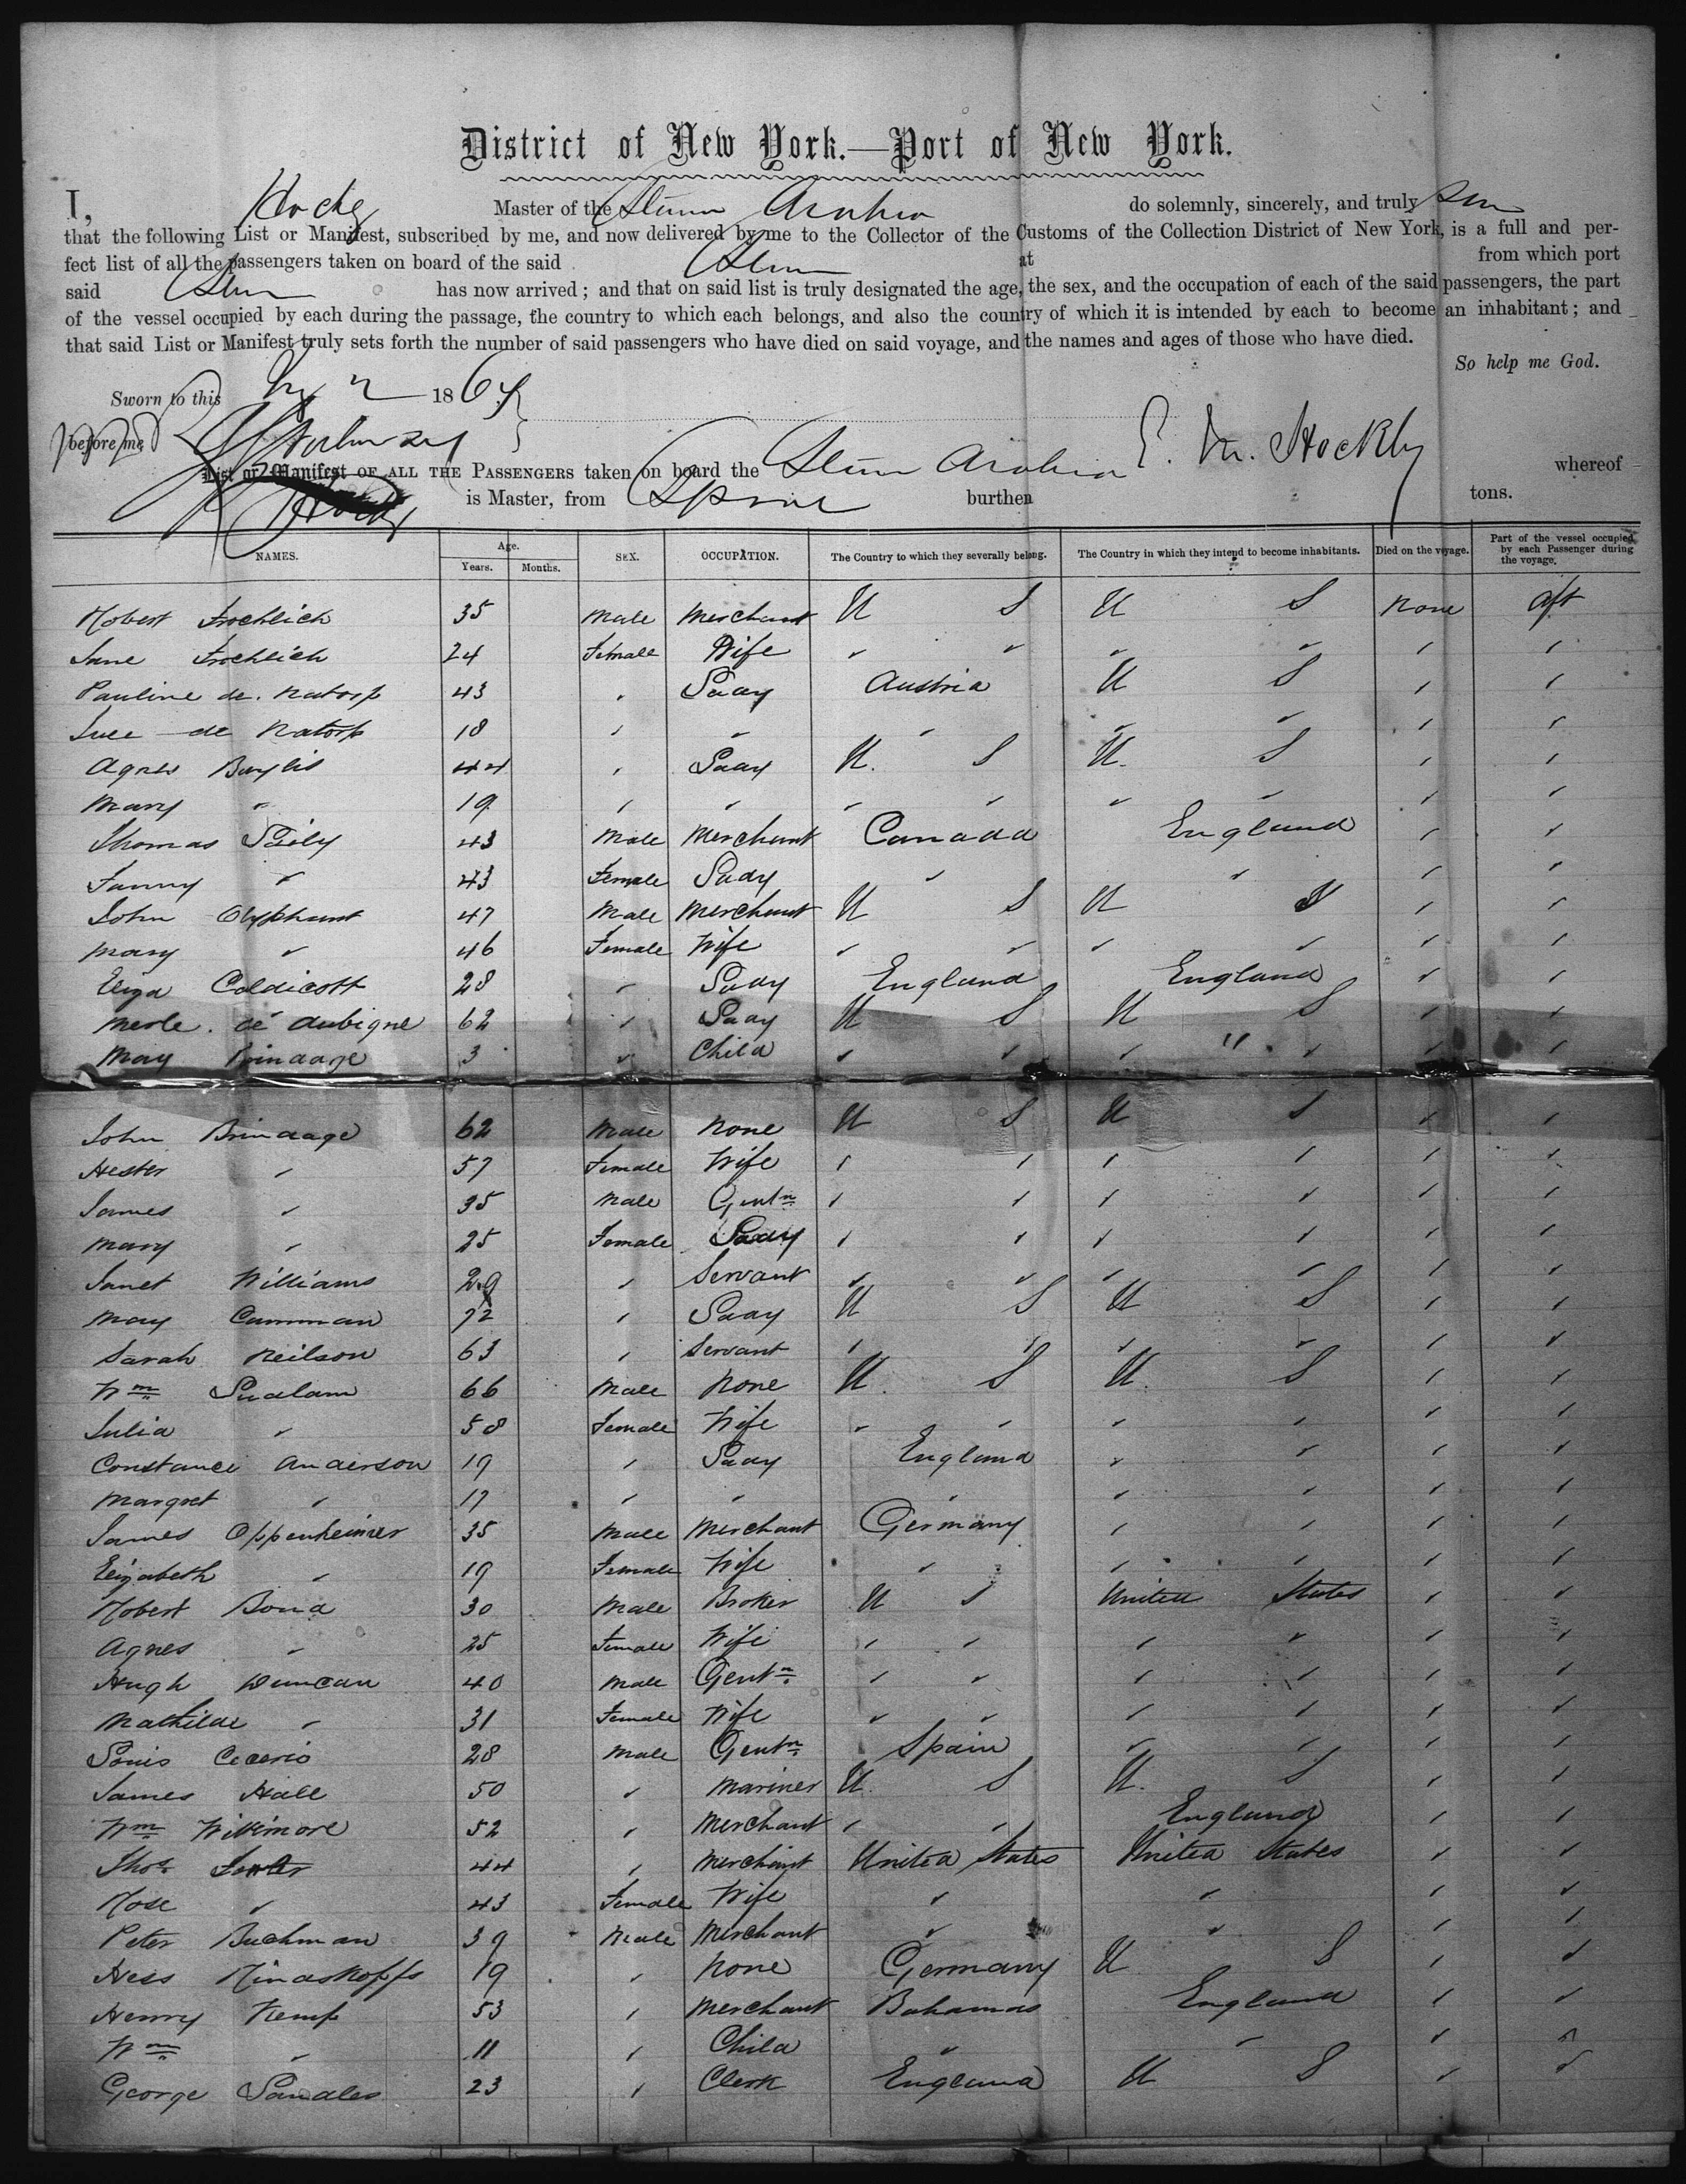 District of New York.—Port of New York.
I, Master of the Steamer Arabia do solemnly, sincerely, and truly
that the following List or Manifest, subscribed by me, and now delivered by me to the Collector of the Customs of the Collection District of New York, is a full and per-
fect list of all the passengers taken on board of the said at from which port
said has now arrived; and that on said list is truly designated the age, the sex, and the occupation of each of the said passengers, the part
of the vessel occupied by each during the passage, the country to which each belongs, and also the country of which it is intended by each to become an inhabitant; and
that said List or Manifest truly sets forth the number of said passengers who have died on said voyage, and the names and ages of those who have died.
So help me God.
Sworn to this 186
before me
List or Manifest OF ALL THE PASSENGERS taken on board the Arabia E. M. Hockly whereof
is Master, from burthen tons.
NAMES. Age. Years. Months. SEX. OCCUPATION. The Country to which they severally belong. The Country in which they intend to become inhabitants. Died on the voyage. Part of the vessel occupied by each Passenger during the voyage.
Robert Froehlich 35 Male Merchant U S U S None Aft
Jane Froehlich 24 Female Wife " " " " " "
Pauline de Natorp 43 " Lady Austria U S " "
de Natorp 18 " " " " " " "
Agnes Baylis 44 " Lady U. S U. S " "
Mary " 19 " " " " " " " "
Thomas 43 Male Merchant Canada England " "
Fanny " 43 Female Lady " " " "
John Olyphant 47 Male Merchant U S U S " "
Mary " 46 Female Wife " " " " " "
Eliza Coldicott 28 " Lady England England " "
Merle de Aubigne 62 " Lady U S U S " "
May Brindage 3 " Child " " " " " "
John Brindage 62 Male None U S U S " "
Hester " 57 Female Wife " " " " " "
James " 35 Male Gentn " " " " " "
Mary " 25 Female Lady " " " " " "
Janet Williams 29 " Servant " " " " " "
Mary Camman 72 " Lady U S U S " "
Sarah Neilson 63 " Servant " " " " " "
Wm 66 Male None U. S U. S " "
Julia " 58 Female Wife " " " " " "
Constance Anderson 19 " Lady England " " " "
Margret " 17 " " " " " " "
James Oppenheimer 35 Male Merchant Germany " " " "
Elizabeth " 19 Female Wife " " " " "
Robert Bond 30 Male Broker U S United States " "
Agnes " 25 Female Wife " " " " " "
Hugh Duncan 40 Male Gentn " " " " " "
Mathilde " 31 Female Wife " " " " " "
Louis 28 Male Gentn Spain " " " "
James Hall 50 " Mariner U. S U. S " "
Wm 52 " Merchant " " England " "
Thos 44 " Merchant United States United States " "
Rose " 43 Female Wife " " " "
Peter Buchman 39 Male Merchant " " " "
Hess Rindskopfs 19 " None Germany U S " "
Henry Kemp 53 " Merchant Bahamas England " "
Wm " 11 " Child " " " "
George Sandles 23 " Clerk England U S " "